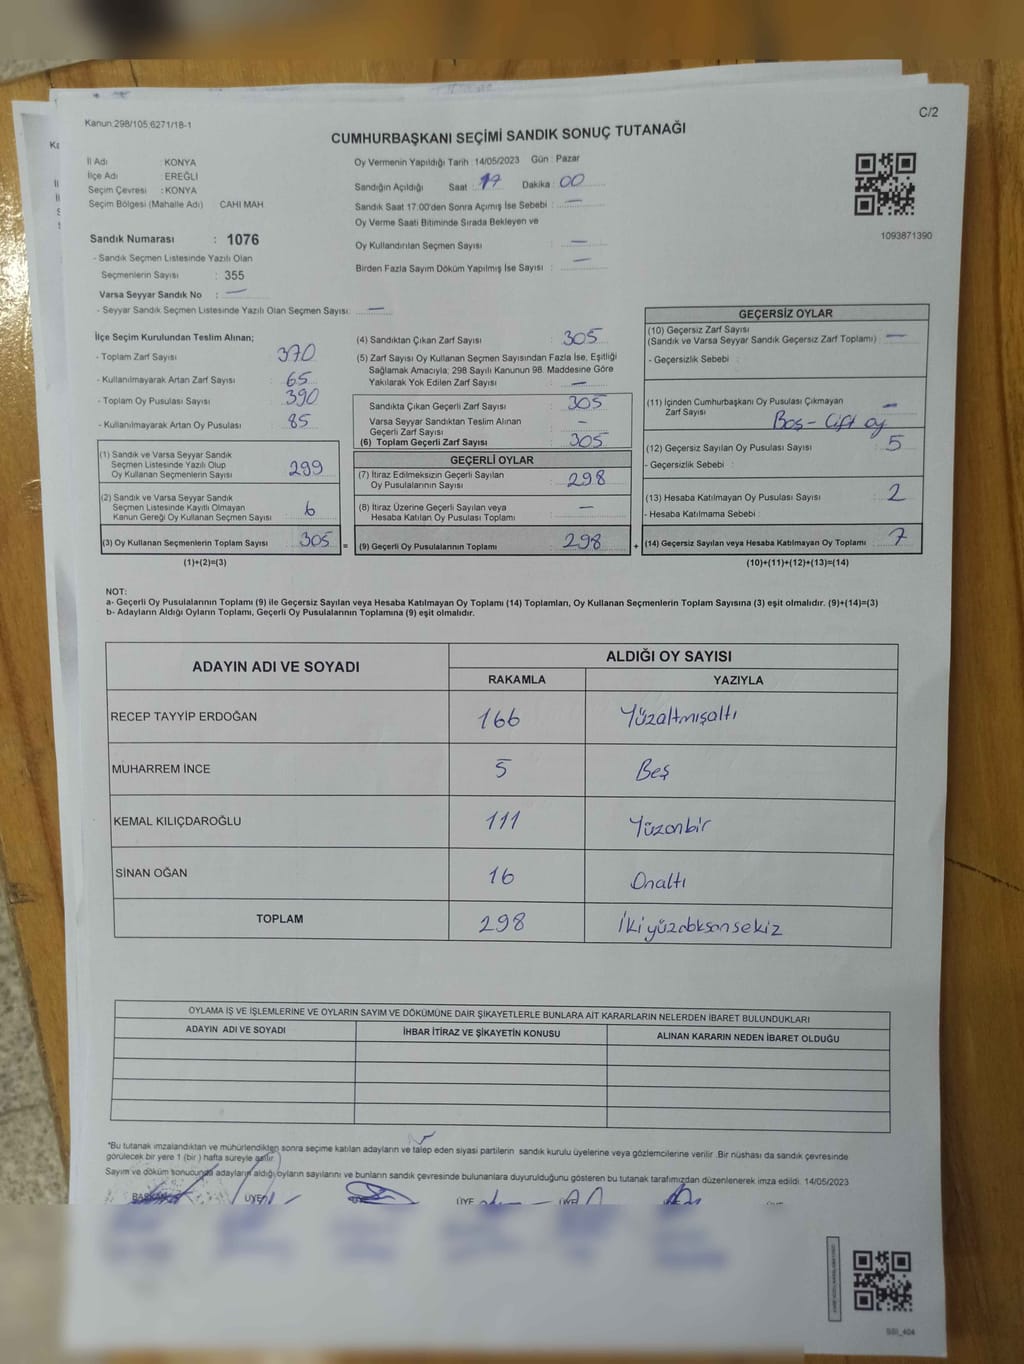 C/2
Kanun:298/105;6271/18-1
CUMHURBAŞKANI SEÇİMİ SANDIK SONUÇ TUTANAĞI
İl Adı : KONYA
İlçe Adı : EREĞLİ
Seçim Çevresi : KONYA
Seçim Bölgesi (Mahalle Adı) CAHI MAH
Sandık Numarası : 1076
- Sandık Seçmen Listesinde Yazılı Olan
Seçmenlerin Sayısı : 355
Varsa Seyyar Sandık No : —
- Seyyar Sandık Seçmen Listesinde Yazılı Olan Seçmen Sayısı: —
Oy Vermenin Yapıldığı Tarih : 14/05/2023 Gün : Pazar
Sandığın Açıldığı Saat : 17 Dakika : 00
Sandık Saat 17:00'den Sonra Açımış İse Sebebi : —
Oy Verme Saati Bitiminde Sırada Bekleyen ve
Oy Kullandırılan Seçmen Sayısı : —
Birden Fazla Sayım Döküm Yapılmış İse Sayısı : —
1093871390
İlçe Seçim Kurulundan Teslim Alınan;
- Toplam Zarf Sayısı : 370
- Kullanılmayarak Artan Zarf Sayısı : 65
- Toplam Oy Pusulası Sayısı : 390
- Kullanılmayarak Artan Oy Pusulası : 85
(1) Sandık ve Varsa Seyyar Sandık
Seçmen Listesinde Yazılı Olup
Oy Kullanan Seçmenlerin Sayısı : 299
(2) Sandık ve Varsa Seyyar Sandık
Seçmen Listesinde Kayıtlı Olmayan
Kanun Gereği Oy Kullanan Seçmen Sayısı : 6
(3) Oy Kullanan Seçmenlerin Toplam Sayısı : 305 =
(1)+(2)=(3)
(4) Sandıktan Çıkan Zarf Sayısı : 305
(5) Zarf Sayısı Oy Kullanan Seçmen Sayısından Fazla İse, Eşitliği
Sağlamak Amacıyla; 298 Sayılı Kanunun 98. Maddesine Göre
Yakılarak Yok Edilen Zarf Sayısı : —
Sandıkta Çıkan Geçerli Zarf Sayısı : 305
Varsa Seyyar Sandıktan Teslim Alınan
Geçerli Zarf Sayısı : —
(6) Toplam Geçerli Zarf Sayısı : 305
GEÇERLİ OYLAR
(7) İtiraz Edilmeksizin Geçerli Sayılan
Oy Pusulalarının Sayısı : 298
(8) İtiraz Üzerine Geçerli Sayılan veya
Hesaba Katılan Oy Pusulası Toplamı : —
(9) Geçerli Oy Pusulalarının Toplamı : 298 +
GEÇERSİZ OYLAR
(10) Geçersiz Zarf Sayısı
(Sandık ve Varsa Seyyar Sandık Geçersiz Zarf Toplamı) : —
- Geçersizlik Sebebi :
(11) İçinden Cumhurbaşkanı Oy Pusulası Çıkmayan
Zarf Sayısı : —
Boş - Çift oy
(12) Geçersiz Sayılan Oy Pusulası Sayısı : 5
- Geçersizlik Sebebi :
(13) Hesaba Katılmayan Oy Pusulası Sayısı : 2
- Hesaba Katılmama Sebebi :
(14) Geçersiz Sayılan veya Hesaba Katılmayan Oy Toplamı : 7
(10)+(11)+(12)+(13)=(14)
NOT:
a- Geçerli Oy Pusulalarının Toplamı (9) ile Geçersiz Sayılan veya Hesaba Katılmayan Oy Toplamı (14) Toplamları, Oy Kullanan Seçmenlerin Toplam Sayısına (3) eşit olmalıdır. (9)+(14)=(3)
b- Adayların Aldığı Oyların Toplamı, Geçerli Oy Pusulalarının Toplamına (9) eşit olmalıdır.
ADAYIN ADI VE SOYADI ALDIĞI OY SAYISI
RAKAMLA YAZIYLA
RECEP TAYYİP ERDOĞAN 166 Yüzaltmışaltı
MUHARREM İNCE 5 Beş
KEMAL KILIÇDAROĞLU 111 Yüzonbir
SİNAN OĞAN 16 Onaltı
TOPLAM 298 İkiyüzdoksansekiz
OYLAMA İŞ VE İŞLEMLERİNE VE OYLARIN SAYIM VE DÖKÜMÜNE DAİR ŞİKAYETLERLE BUNLARA AİT KARARLARIN NELERDEN İBARET BULUNDUKLARI
ADAYIN ADI VE SOYADI İHBAR İTİRAZ VE ŞİKAYETİN KONUSU ALINAN KARARIN NEDEN İBARET OLDUĞU
*Bu tutanak imzalandıktan ve mühürlendikten sonra seçime katılan adayların ve talep eden siyasi partilerin sandık kurulu üyelerine veya gözlemcilerine verilir .Bir nüshası da sandık çevresinde
görülecek bir yere 1 (bir) hafta süreyle asılır.
Sayım ve döküm sonucunda adayların aldığı oyların sayılarını ve bunların sandık çevresinde bulunanlara duyurulduğunu gösteren bu tutanak tarafımızdan düzenlenerek imza edildi. 14/05/2023
BAŞKAN ÜYE ÜYE ÜYE